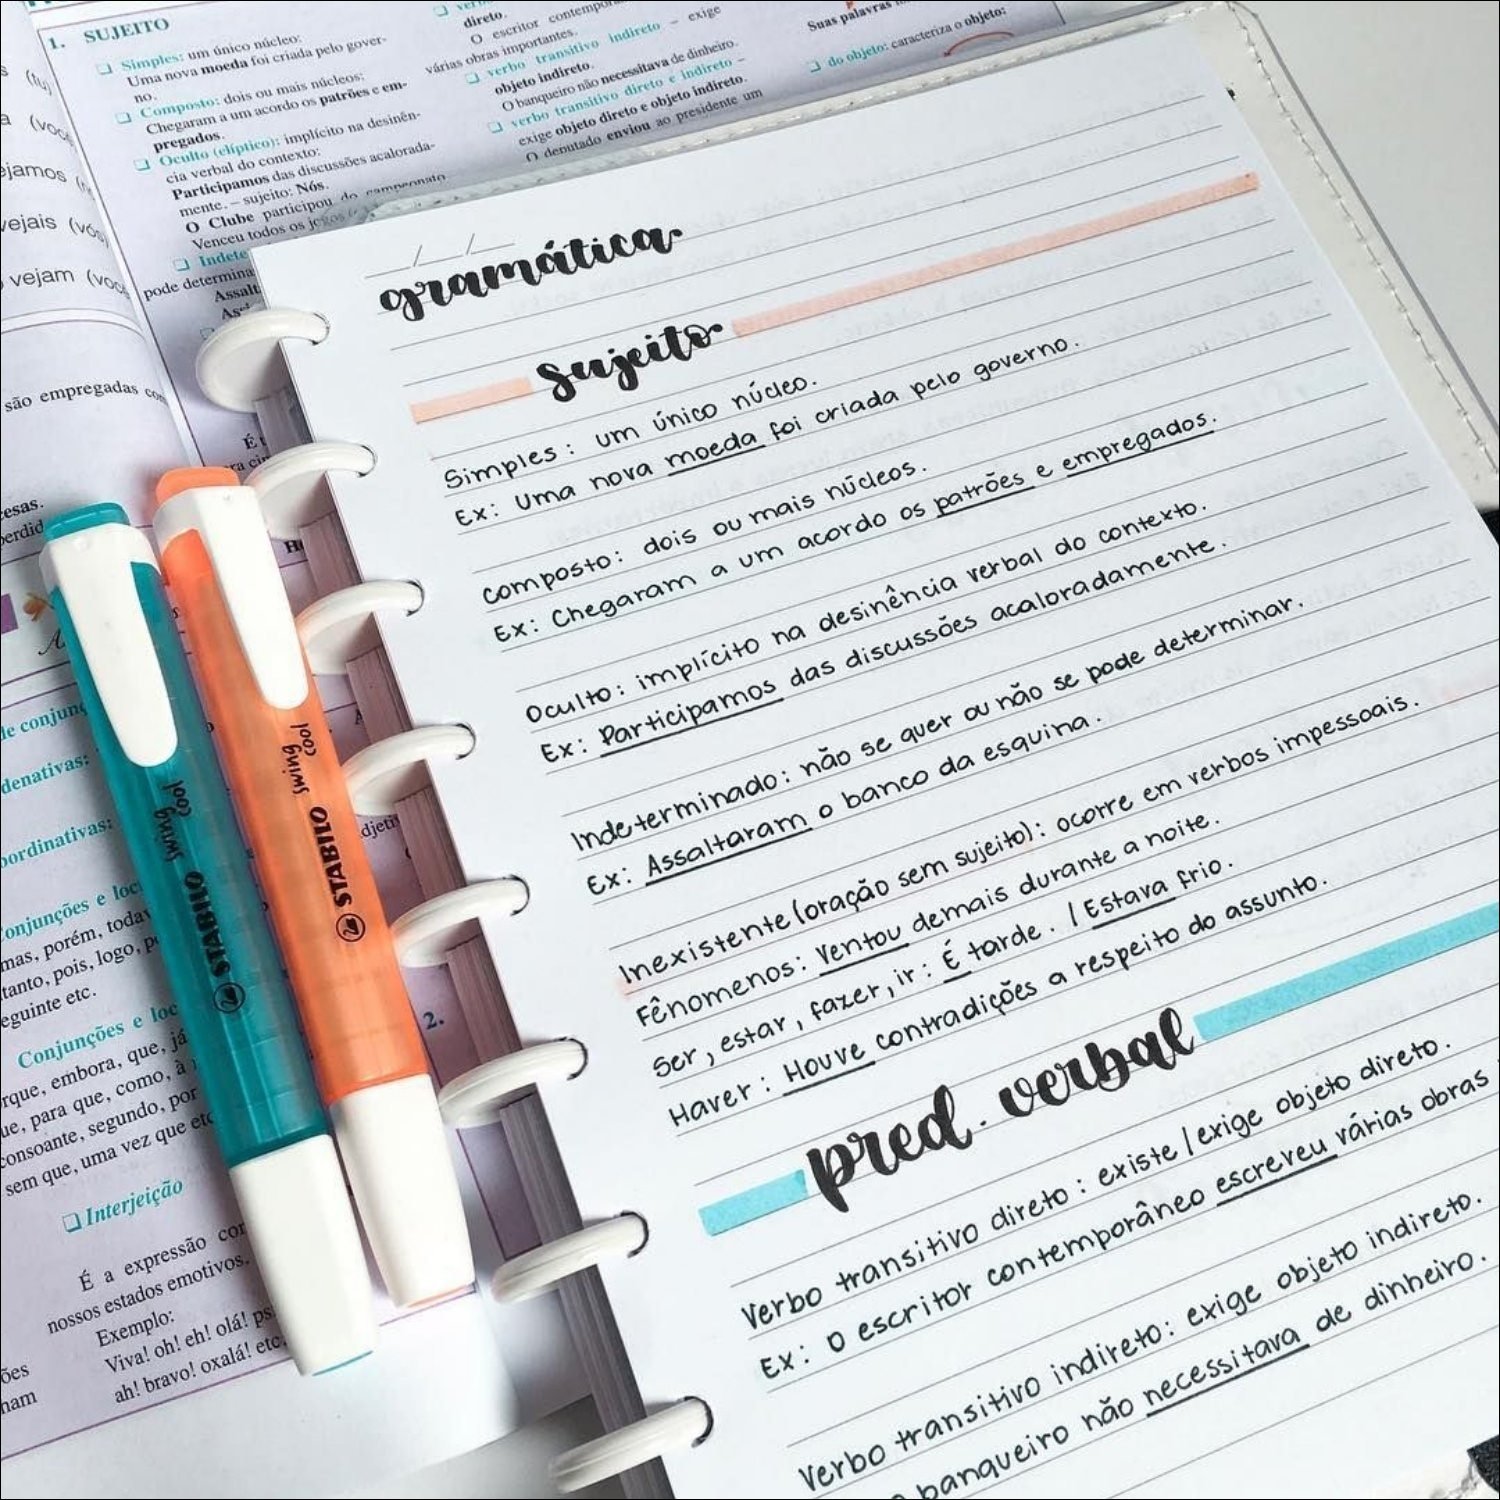 1. SUJEITO
Simples: um único núcleo:
Uma nova moeda foi criada pelo gover-
no.
Composto: dois ou mais núcleos:
Chegaram a um acordo os patrões e em-
pregados.
Oculto (elíptico): implícito na desinên-
cia verbal do contexto:
Participamos das discussões acalorada-
mente. – sujeito: Nós.
O Clube participou do campeonato
Venceu todos os jogos
Indete
pode determina
Assalt
direto.
O escritor
várias obras importantes.
verbo transitivo indireto – exige
objeto indireto.
O banqueiro não necessitava de dinheiro.
verbo transitivo direto e indireto –
exige objeto direto e objeto indireto.
O deputado enviou ao presidente um
Suas palavras
do objeto: caracteriza o objeto:
(tu)
(voc
ejamos
vejais (vós)
vejam (você
são empregadas
esas.
perdid
de conjun
denativas:
oordinativas:
onjunções e loc
mas, porém, todav
tanto, pois, logo, p
eguinte etc.
Conjunções e loc
rque, embora, que, já
ue, para que, como, à
consoante, segundo, por
sem que, uma vez que etc
Interjeição
É a expressão cor
nossos estados emotivos.
Exemplo:
Viva! oh! eh! olá! ps
ah! bravo! oxalá! etc.
ões
ham
2.
STABILO swing cool
STABILO swing cool
gramática
sujeito
Simples: um único núcleo.
Ex: Uma nova moeda foi criada pelo governo.
composto: dois ou mais núcleos.
Ex: Chegaram a um acordo os patrões e empregados.
Oculto: implícito na desinência verbal do contexto.
Ex: Participamos das discussões acaloradamente.
Indeterminado: não se quer ou não se pode determinar.
Ex: Assaltaram o banco da esquina.
Inexistente (oração sem sujeito): ocorre em verbos impessoais.
Fenômenos: Ventou demais durante a noite.
Ser, estar, fazer, ir: É tarde. / Estava frio.
Haver: Houve contradições a respeito do assunto.
pred. verbal
Verbo transitivo direto: existe / exige objeto direto.
Ex: O escritor contemporâneo escreveu várias obras
Verbo transitivo indireto: exige objeto indireto.
o banqueiro não necessitava de dinheiro.